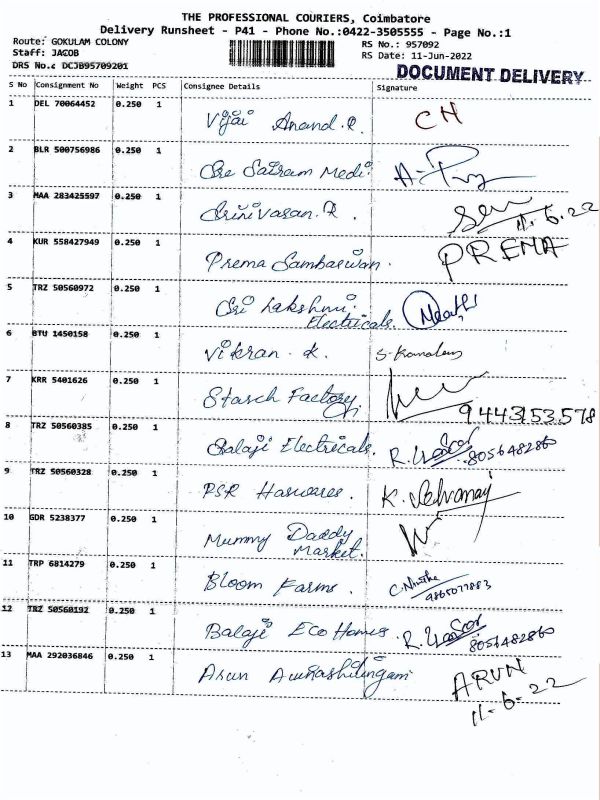 THE PROFESSIONAL COURIERS, Coimbatore
Delivery Runsheet - P41 - Phone No.:0422-3505555 - Page No.:1
Route: GOKULAM COLONY RS No.: 957092
Staff: JACOB RS Date: 11-Jun-2022
DRS No.: DCJB95709201 DOCUMENT DELIVERY
S No Consignment No Weight PCS Consignee Details Signature
1 DEL 70064452 0.250 1 Vijai Anand.R. CH
2 BLR 500756986 0.250 1 Sre Sairam Medi.
3 MAA 283425597 0.250 1 Srinivasan.R. 11.6.22
4 KUR 558427949 0.250 1 Prema Sambaswan. PREMA
5 TRZ 50560972 0.250 1 Sri Lakshmi
Electricals.
6 BTU 1450158 0.250 1 Vikran.K.
7 KRR 5401626 0.250 1 Starch Factory.
9443153578
8 TRZ 50560385 0.250 1 Balaji Electricals. 8056482860
9 TRZ 50560328 0.250 1 PSR K.
10 GDR 5238377 0.250 1 Mummy Daddy
Market.
11 TRP 6814279 0.250 1 Bloom Farms.
9865077883
12 TRZ 50560192 0.250 1 Balaji Eco Homes. 8056482860
13 MAA 292036846 0.250 1 Arun ARUN
11-6-22